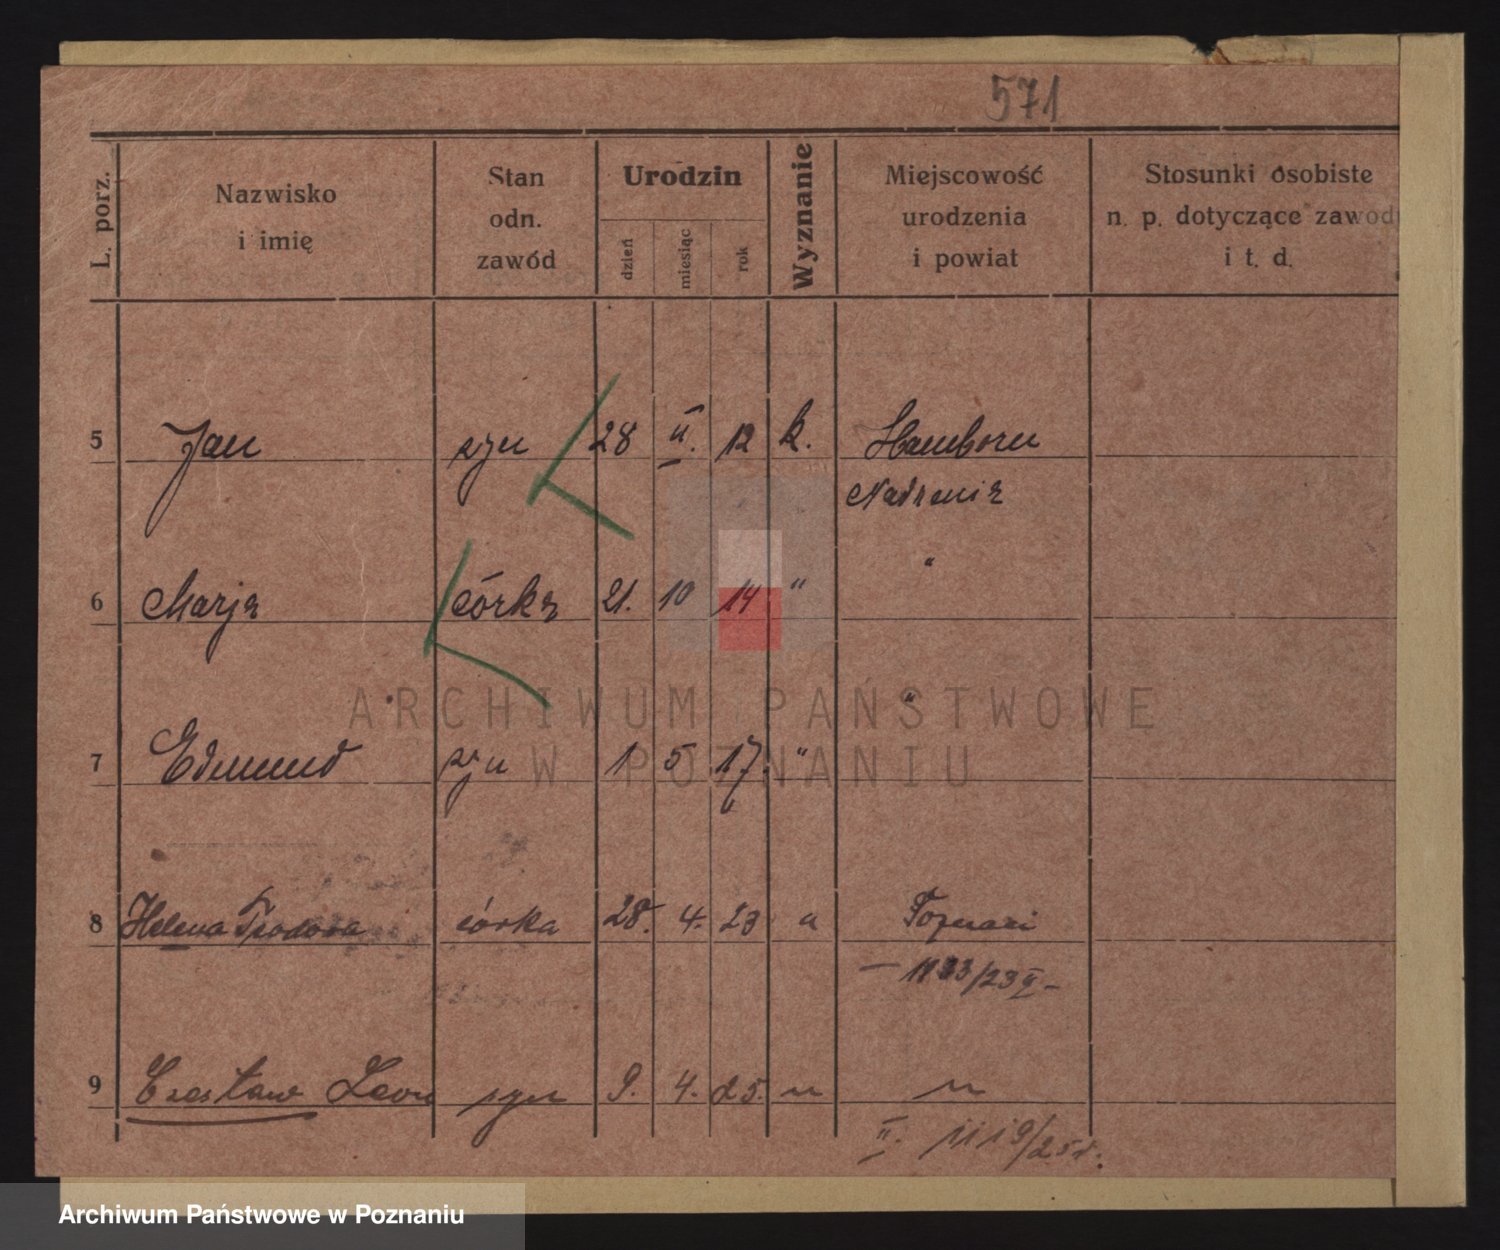 571
L. porz.
Nazwisko
i imię
Stan
odn.
zawód
Urodzin
dzień
miesiąc
rok
Wyznanie
Miejscowość
urodzenia
i powiat
Stosunki osobiste
n. p. dotyczące zawod
i t. d.
5 Jan syn 28 II. 12 k. Hamborn
Nadrenia
"
6 Marja córka 21. 10 14 "
"
7 Edmund syn 1 5 17 "
8 Helena Teodora córka 28. 4. 23 " Poznań
9 Czesław Leon syn 9. 4. 25. " "
II. 1119/25r.
ARCHIWUM PAŃSTWOWE
W POZNANIU
Archiwum Państwowe w Poznaniu